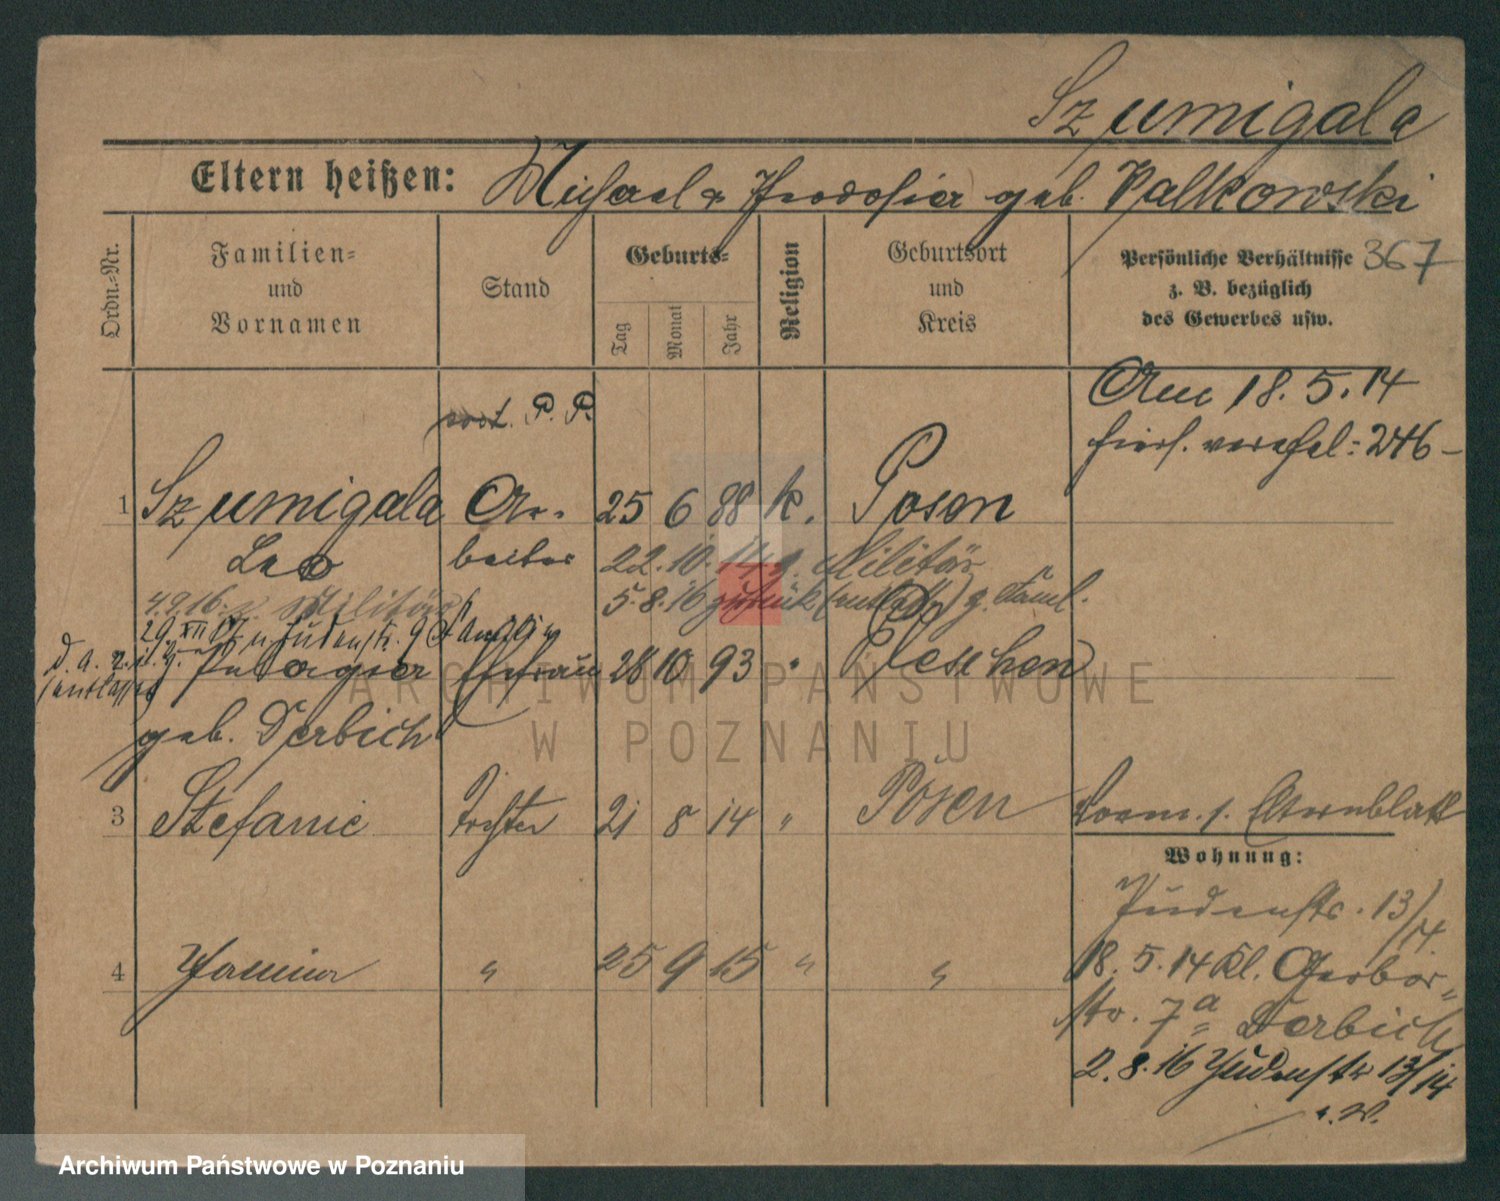 Szumigala
Eltern heißen: Michael u. Theodosia geb. Palkowski
Ordn.-Nr.
Familien-
und
Vornamen
Stand
Geburts-
Tag
Monat
Jahr
Religion
Geburtsort
und
Kreis
Persönliche Verhältnisse
z. B. bezüglich
des Gewerbes usw.
367
Am 18. 5. 14
hiers. verehel: 246-
P. P.
1 Szumigala Ar- 25 6 88 k. Posen
Leo beiter 22. 10. 14 z. Militär
5. 8. 16 zurück (entl.) z. Faml.
4. 9. 16. z. Militär
29. XII 17 n Judenstr. z Familie
d. a.
entlassen
Pelagia Ehefrau 28 10 93 " Pleschen
geb. Derbich
3 Stefanie Tochter 21 8 14 " Posen
Korm. s. Elternblatt
Wohnung:
Judenstr. 13/14
4 Janina " 25 9 15 " "
18. 5. 14 Kl. Gerber-
str. 7a Derbich
2. 8. 16 Judenstr 13/14
s. W.
ARCHIWUM PAŃSTWOWE
W POZNANIU
Archiwum Państwowe w Poznaniu